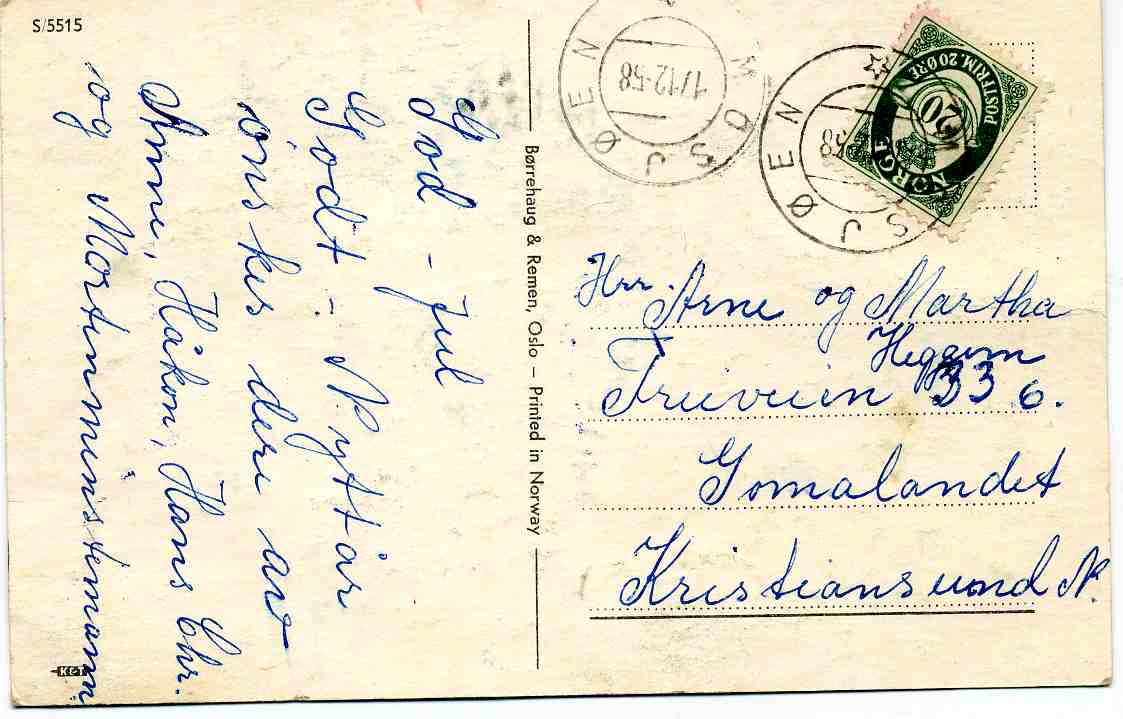 S/5515
God - Jul
Godt - Nyttår
önskes dere av
Anne, Håkon, Hans Chr.
og Mortenminstemann
Børrehaug & Remen, Oslo – Printed in Norway
K·E·T
JØEN
17.12.58
JØEN
58
NORGE
20
POSTFRIM. 20 ØRE
Hrr. Arne og Martha
Heggem
Freiveien 33 b.
Gomalandet
Kristiansund N.